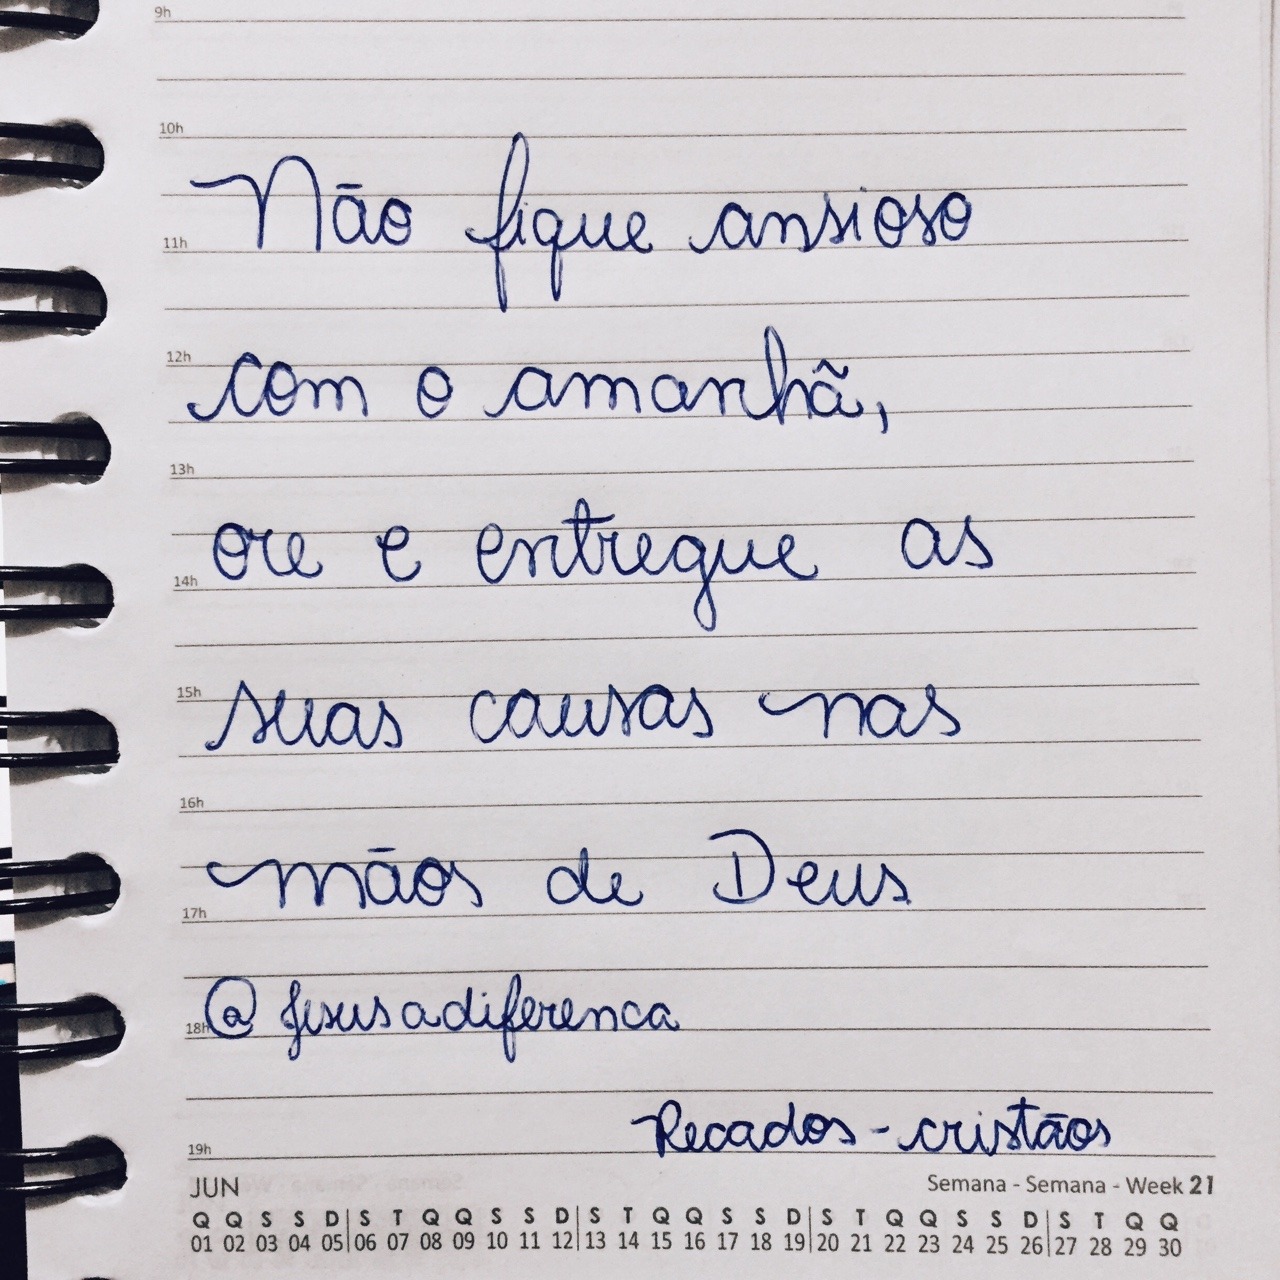 9h
10h
Não fique ansioso
11h
12h
com o amanhã,
13h
ore e entregue as
14h
15h
suas causas nas
16h
mãos de Deus
17h
@Jesusadiferenca
18h
Recados-cristãos
19h
JUN
Semana - Semana - Week 21
Q Q S S D S T Q Q S S D S T Q Q S S D S T Q Q S S D S T Q Q
01 02 03 04 05 06 07 08 09 10 11 12 13 14 15 16 17 18 19 20 21 22 23 24 25 26 27 28 29 30